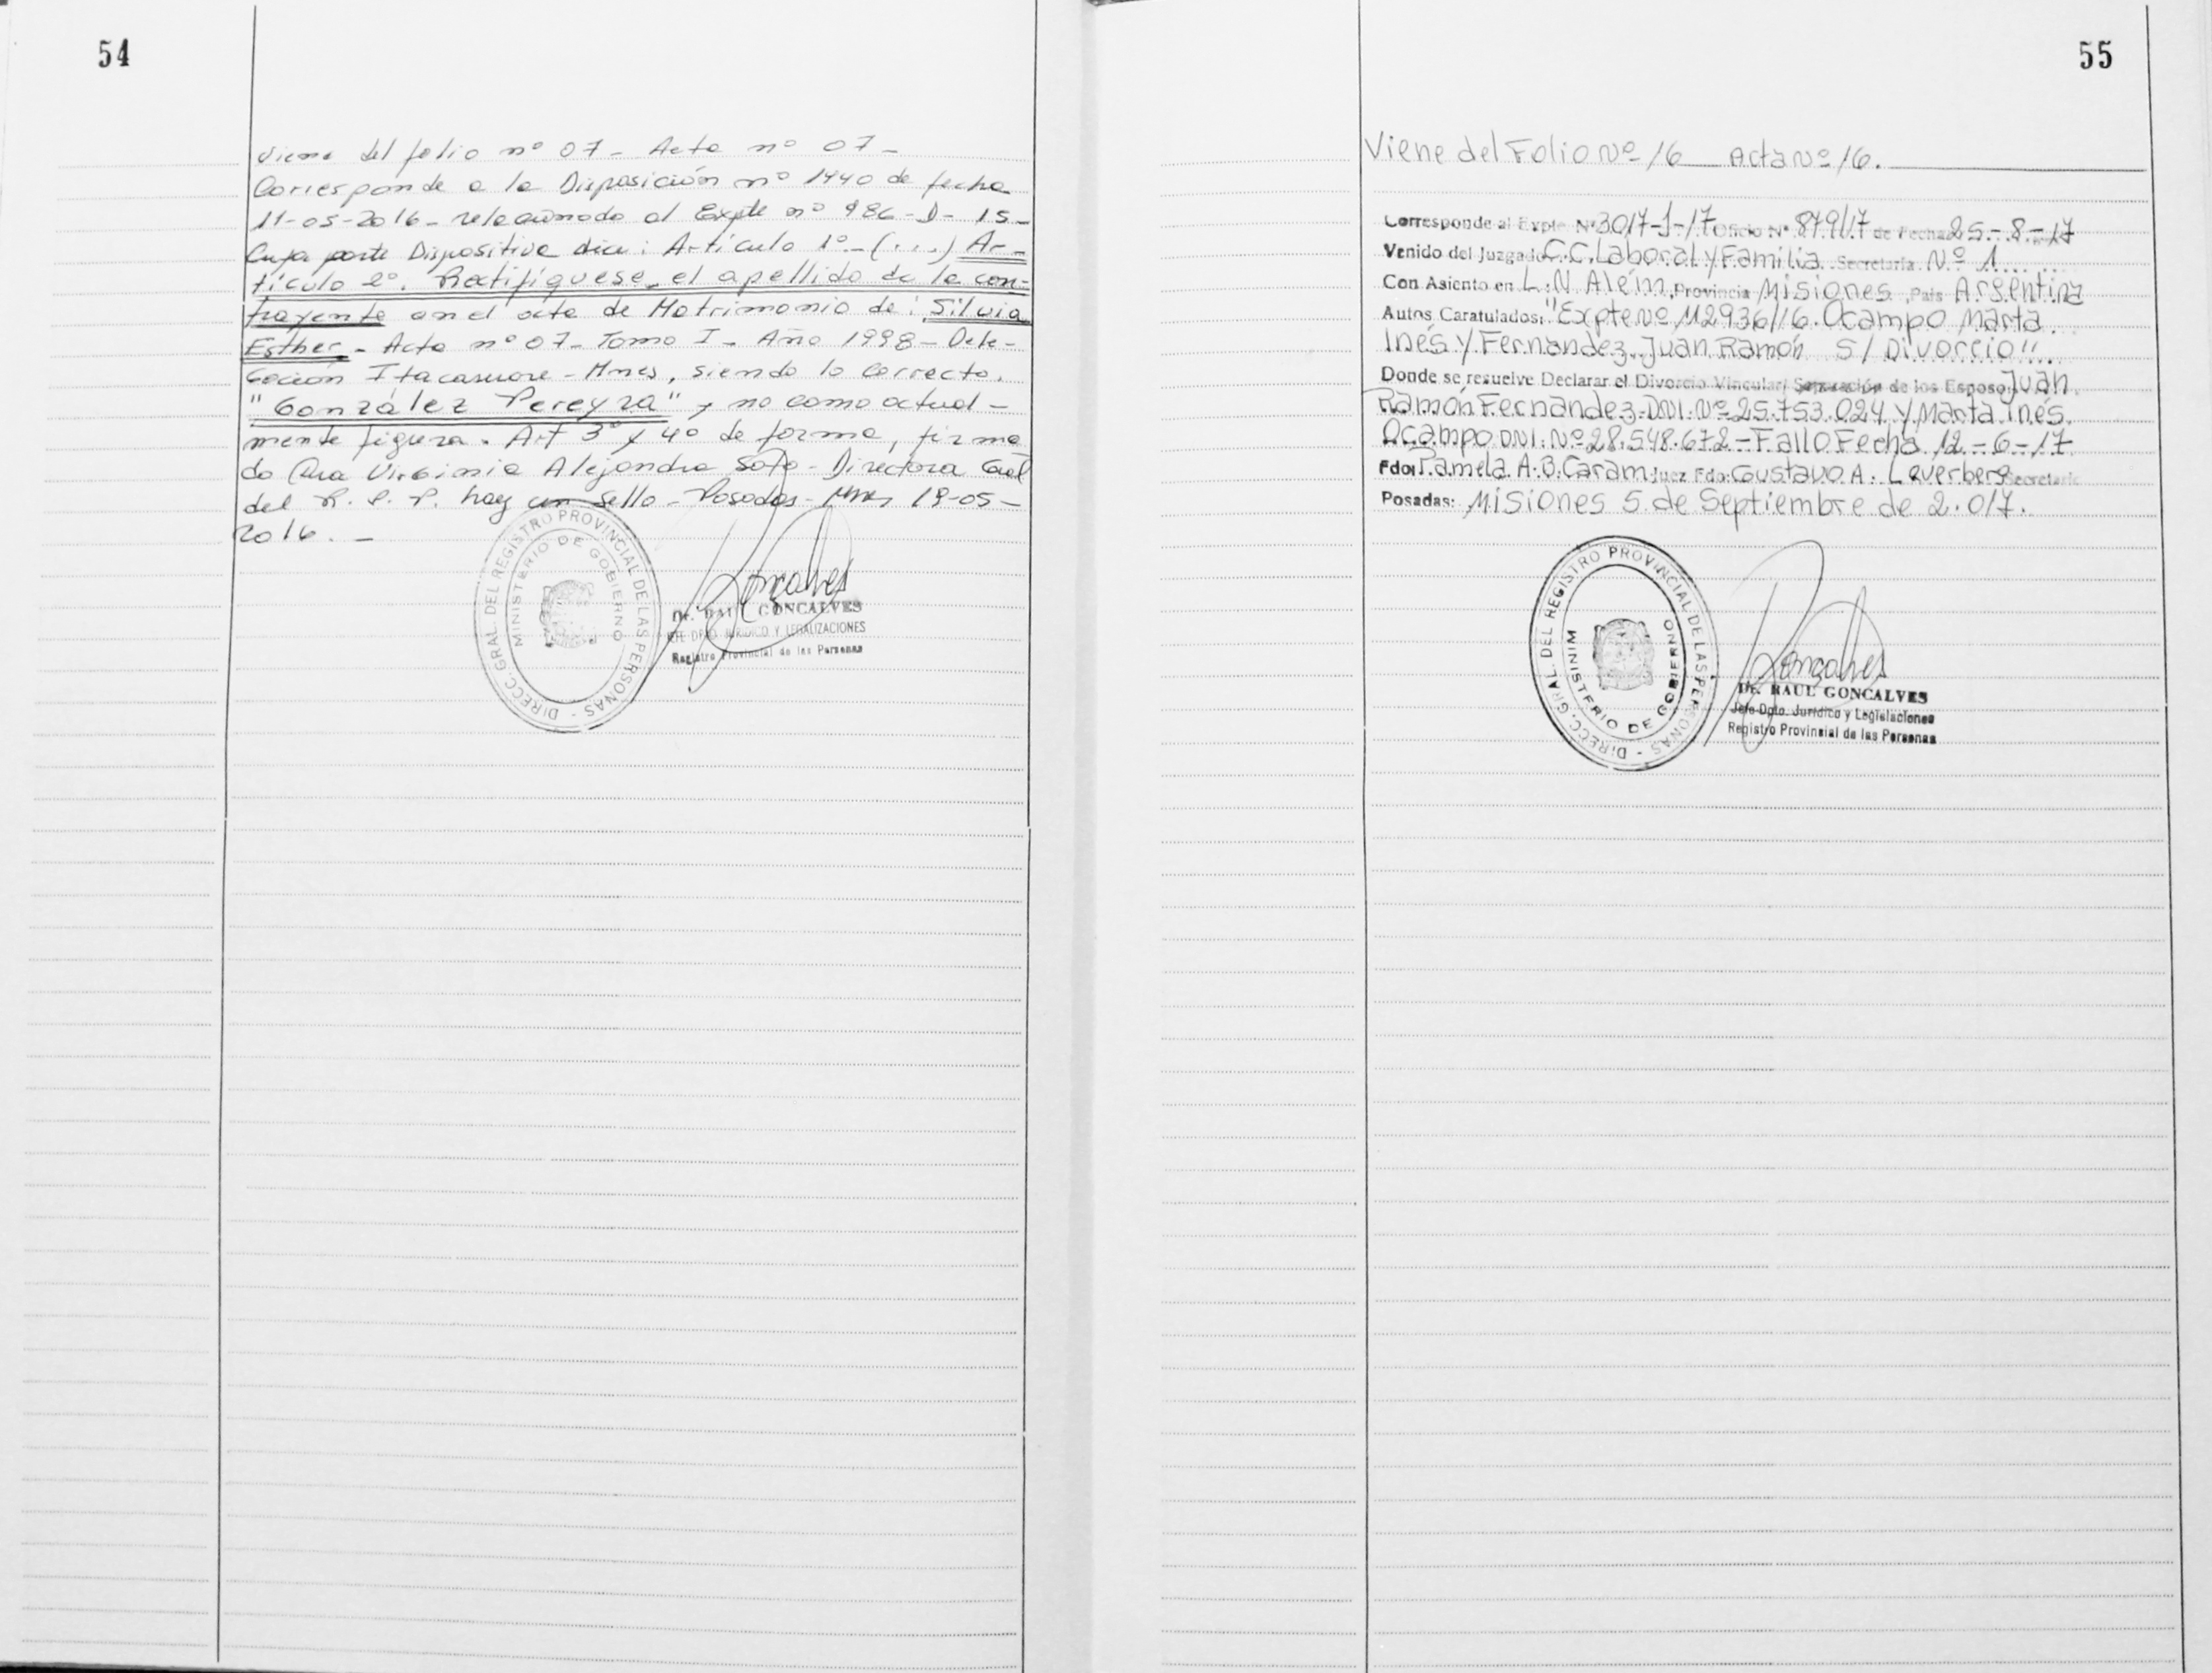 54
Viene del folio nº 07 - Acta nº 07 -
Corresponde a la Disposición nº 1440 de fecha
11-05-2016 - relacionado al Expte nº 986 - D - 15 -
Cuya parte Dispositiva dice: Artículo 1º - (...) Ar-
tículo 2º. Rectifíquese, el apellido de la con-
trayente en el acta de Matrimonio de: Silvia
Esther - Acta nº 07 - Tomo I - Año 1998 - Dele-
gación Itacaruare - Mnes, siendo lo correcto.
"González Pereyra" y no como actual-
mente figura. Art 3º y 4º de forma, firma
do Dra Virginia Alejandra Soto - Directora Gral
del R. P. P. hay un sello - Posadas - Mnes 19-05-
2016. -
DIRECC. GRAL. DEL REGISTRO PROVINCIAL DE LAS PERSONAS -
MINISTERIO DE GOBIERNO
Goncalves
Dr. RAUL GONCALVES
JEFE DPTO. JURIDICO Y LEGALIZACIONES
Registro Provincial de las Personas
55
Viene del Folio Nº 16 Acta Nº 16.
Corresponde al Expte. Nº 3017-J-17 Oficio Nº 879/17 de Fecha 25-8-17
Venido del Juzgado C.C. Laboral y Familia Secretaria Nº 1
Con Asiento en L. N Além, Provincia Misiones, Pais Argentina
Autos Caratulados: "Expte Nº 112936/16. Ocampo Marta
Inés y Fernandez Juan Ramón S/ Divorcio".
Donde se resuelve Declarar el Divorcio Vincular/ Separación de los Esposos Juan
Ramón Fernandez - DNI. Nº 25.753.024 y Marta Inés
Ocampo DNI. Nº 28.548.672 - Fallo Fecha 12-6-17
Fdo: Pamela A. B. Caram Juez Fdo: Gustavo A. Leverberg Secretario
Posadas: Misiones 5 de Septiembre de 2.017.
DIRECC. GRAL. DEL REGISTRO PROVINCIAL DE LAS PERSONAS -
MINISTERIO DE GOBIERNO
Goncalves
Dr. RAUL GONCALVES
Jefe Dpto. Jurídico y Legislaciones
Registro Provincial de las Personas